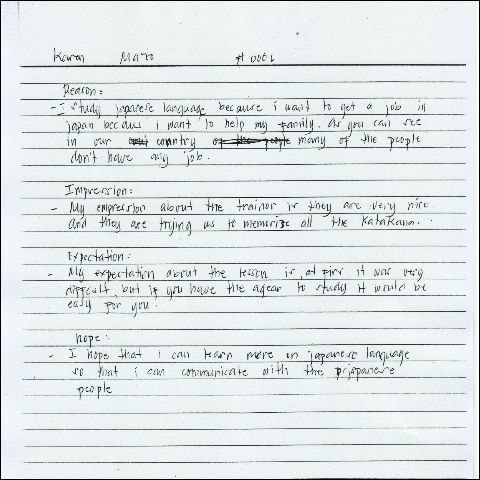 Karen Mato # 0001
Reason:
- I study japanese language because i want to get a job in
japan becaus i want to help my family. As you can see
in our country many of the people
don't have any job.
Impression:
- My empression about the trainor is they are very nice
and they are trying us to memorize all the Katakana.
Expectation:
- My expectation about the lesson is at firs it was very
difficult but if you have the agear to study it would be
easy for you.
hope:
- I hope that i can learn more on japanese language
so that i can communicate with the japanese
people